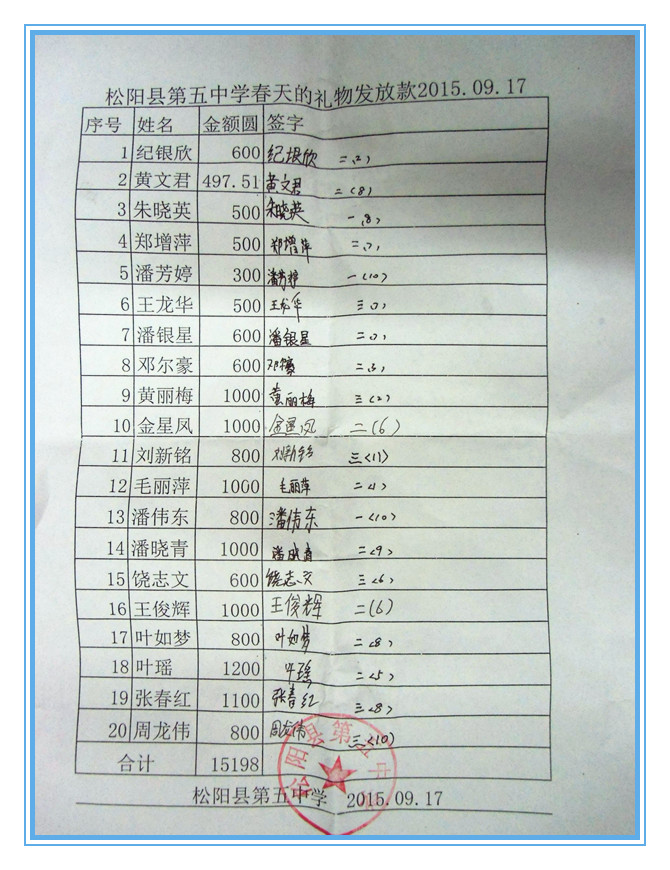 松阳县第五中学春天的礼物发放款2015.09.17
序号 姓名 金额圆 签字
1 纪银欣 600 纪银欣 二(2)
2 黄文君 497.51 黄文君 二(8)
3 朱晓英 500 朱晓英 一(8)
4 郑增萍 500 郑增萍
5 潘芳婷 300 潘芳婷 一(10)
6 王龙华 500 王龙华
7 潘银星 600 潘银星
8 邓尔豪 600
9 黄丽梅 1000 黄丽梅 三(2)
10 金星凤 1000 金星凤 二(6)
11 刘新铭 800 刘新铭 三(11)
12 毛丽萍 1000 毛丽萍
13 潘伟东 800 潘伟东 一(10)
14 潘晓青 1000 二(9)
15 饶志文 600 饶志文 三(6)
16 王俊辉 1000 王俊辉 二(6)
17 叶如梦 800 叶如梦 二(8)
18 叶瑶 1200 叶瑶 二(5)
19 张春红 1100 张春红 三(8)
20 周龙伟 800 周龙伟 三(10)
合计 15198
松阳县第五中学 2015.09.17